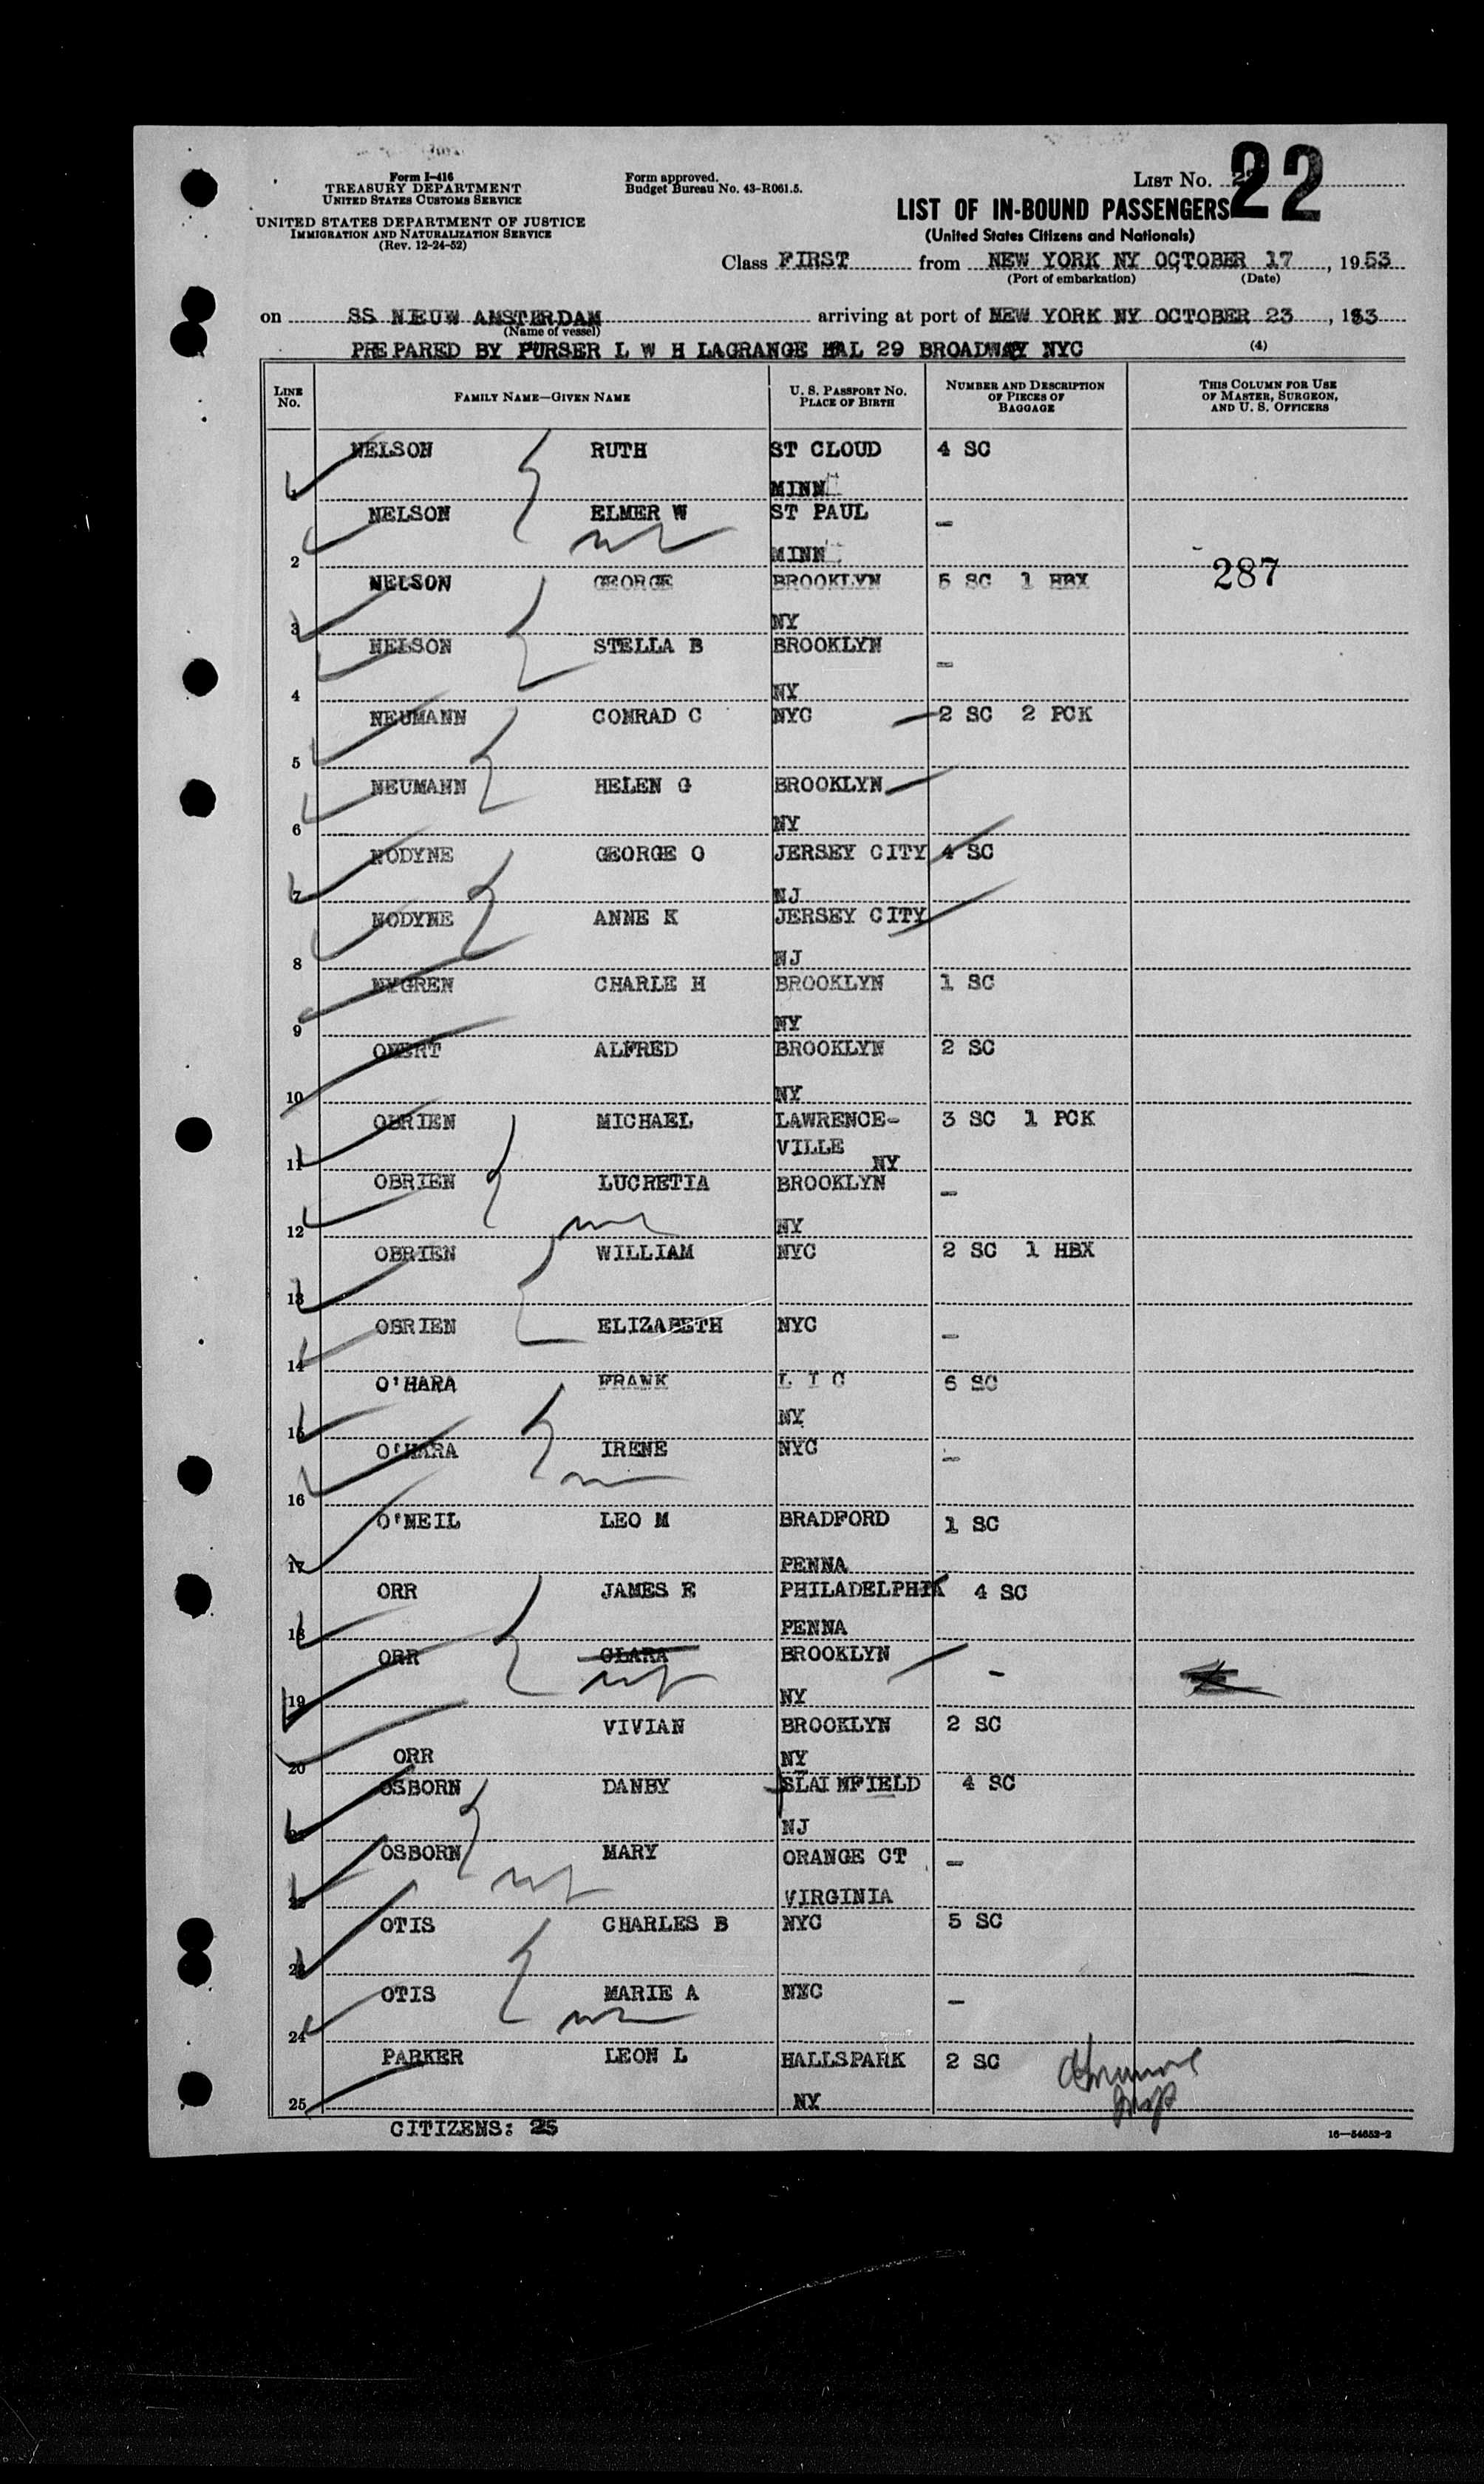 Form I-416
TREASURY DEPARTMENT
UNITED STATES CUSTOMS SERVICE
UNITED STATES DEPARTMENT OF JUSTICE
IMMIGRATION AND NATURALIZATION SERVICE
(Rev. 12-24-52)
Form approved.
Budget Bureau No. 43-R061.5.
LIST No. 22
LIST OF IN-BOUND PASSENGERS
(United States Citizens and Nationals)
Class FIRST from NEW YORK NY OCTOBER 17, 1953
(Port of embarkation) (Date)
on SS NIEUW AMSTERDAM arriving at port of NEW YORK NY OCTOBER 23, 1953
(Name of vessel)
PREPARED BY PURSER L W H LAGRANGE HAL 29 BROADWAY NYC (4)
LINE No. FAMILY NAME—GIVEN NAME U. S. PASSPORT NO. PLACE OF BIRTH NUMBER AND DESCRIPTION OF PIECES OF BAGGAGE THIS COLUMN FOR USE OF MASTER, SURGEON, AND U. S. OFFICERS
1 NELSON RUTH ST CLOUD 4 SC
MINN
2 NELSON ELMER W ST PAUL —
MINN
287
3 NELSON GEORGE BROOKLYN 5 SC 1 HBX
NY
4 NELSON STELLA B BROOKLYN —
NY
5 NEUMANN CONRAD C NYC 2 SC 2 PCK
6 NEUMANN HELEN G BROOKLYN
NY
7 NODYNE GEORGE O JERSEY CITY 4 SC
NJ
8 NODYNE ANNE K JERSEY CITY
NJ
9 NYGREN CHARLE H BROOKLYN 1 SC
NY
10 ALFRED BROOKLYN 2 SC
NY
11 OBRIEN MICHAEL LAWRENCE- 3 SC 1 PCK
VILLE
NY
12 OBRIEN LUCRETIA BROOKLYN —
NY
13 OBRIEN WILLIAM NYC 2 SC 1 HBX
14 OBRIEN ELIZABETH NYC —
15 O'HARA FRANK L I C 6 SC
NY
16 O'HARA IRENE NYC —
17 O'NEIL LEO M BRADFORD 1 SC
PENNA
18 ORR JAMES E PHILADELPHIA 4 SC
PENNA
19 ORR CLARA BROOKLYN -
NY
20 ORR VIVIAN BROOKLYN 2 SC
NY
21 OSBORN DANBY SLAINFIELD 4 SC
NJ
22 OSBORN MARY ORANGE CT —
VIRGINIA
23 OTIS CHARLES B NYC 5 SC
24 OTIS MARIE A NYC —
25 PARKER LEON L HALLSPARK 2 SC
NY
CITIZENS: 25
16—54652-2